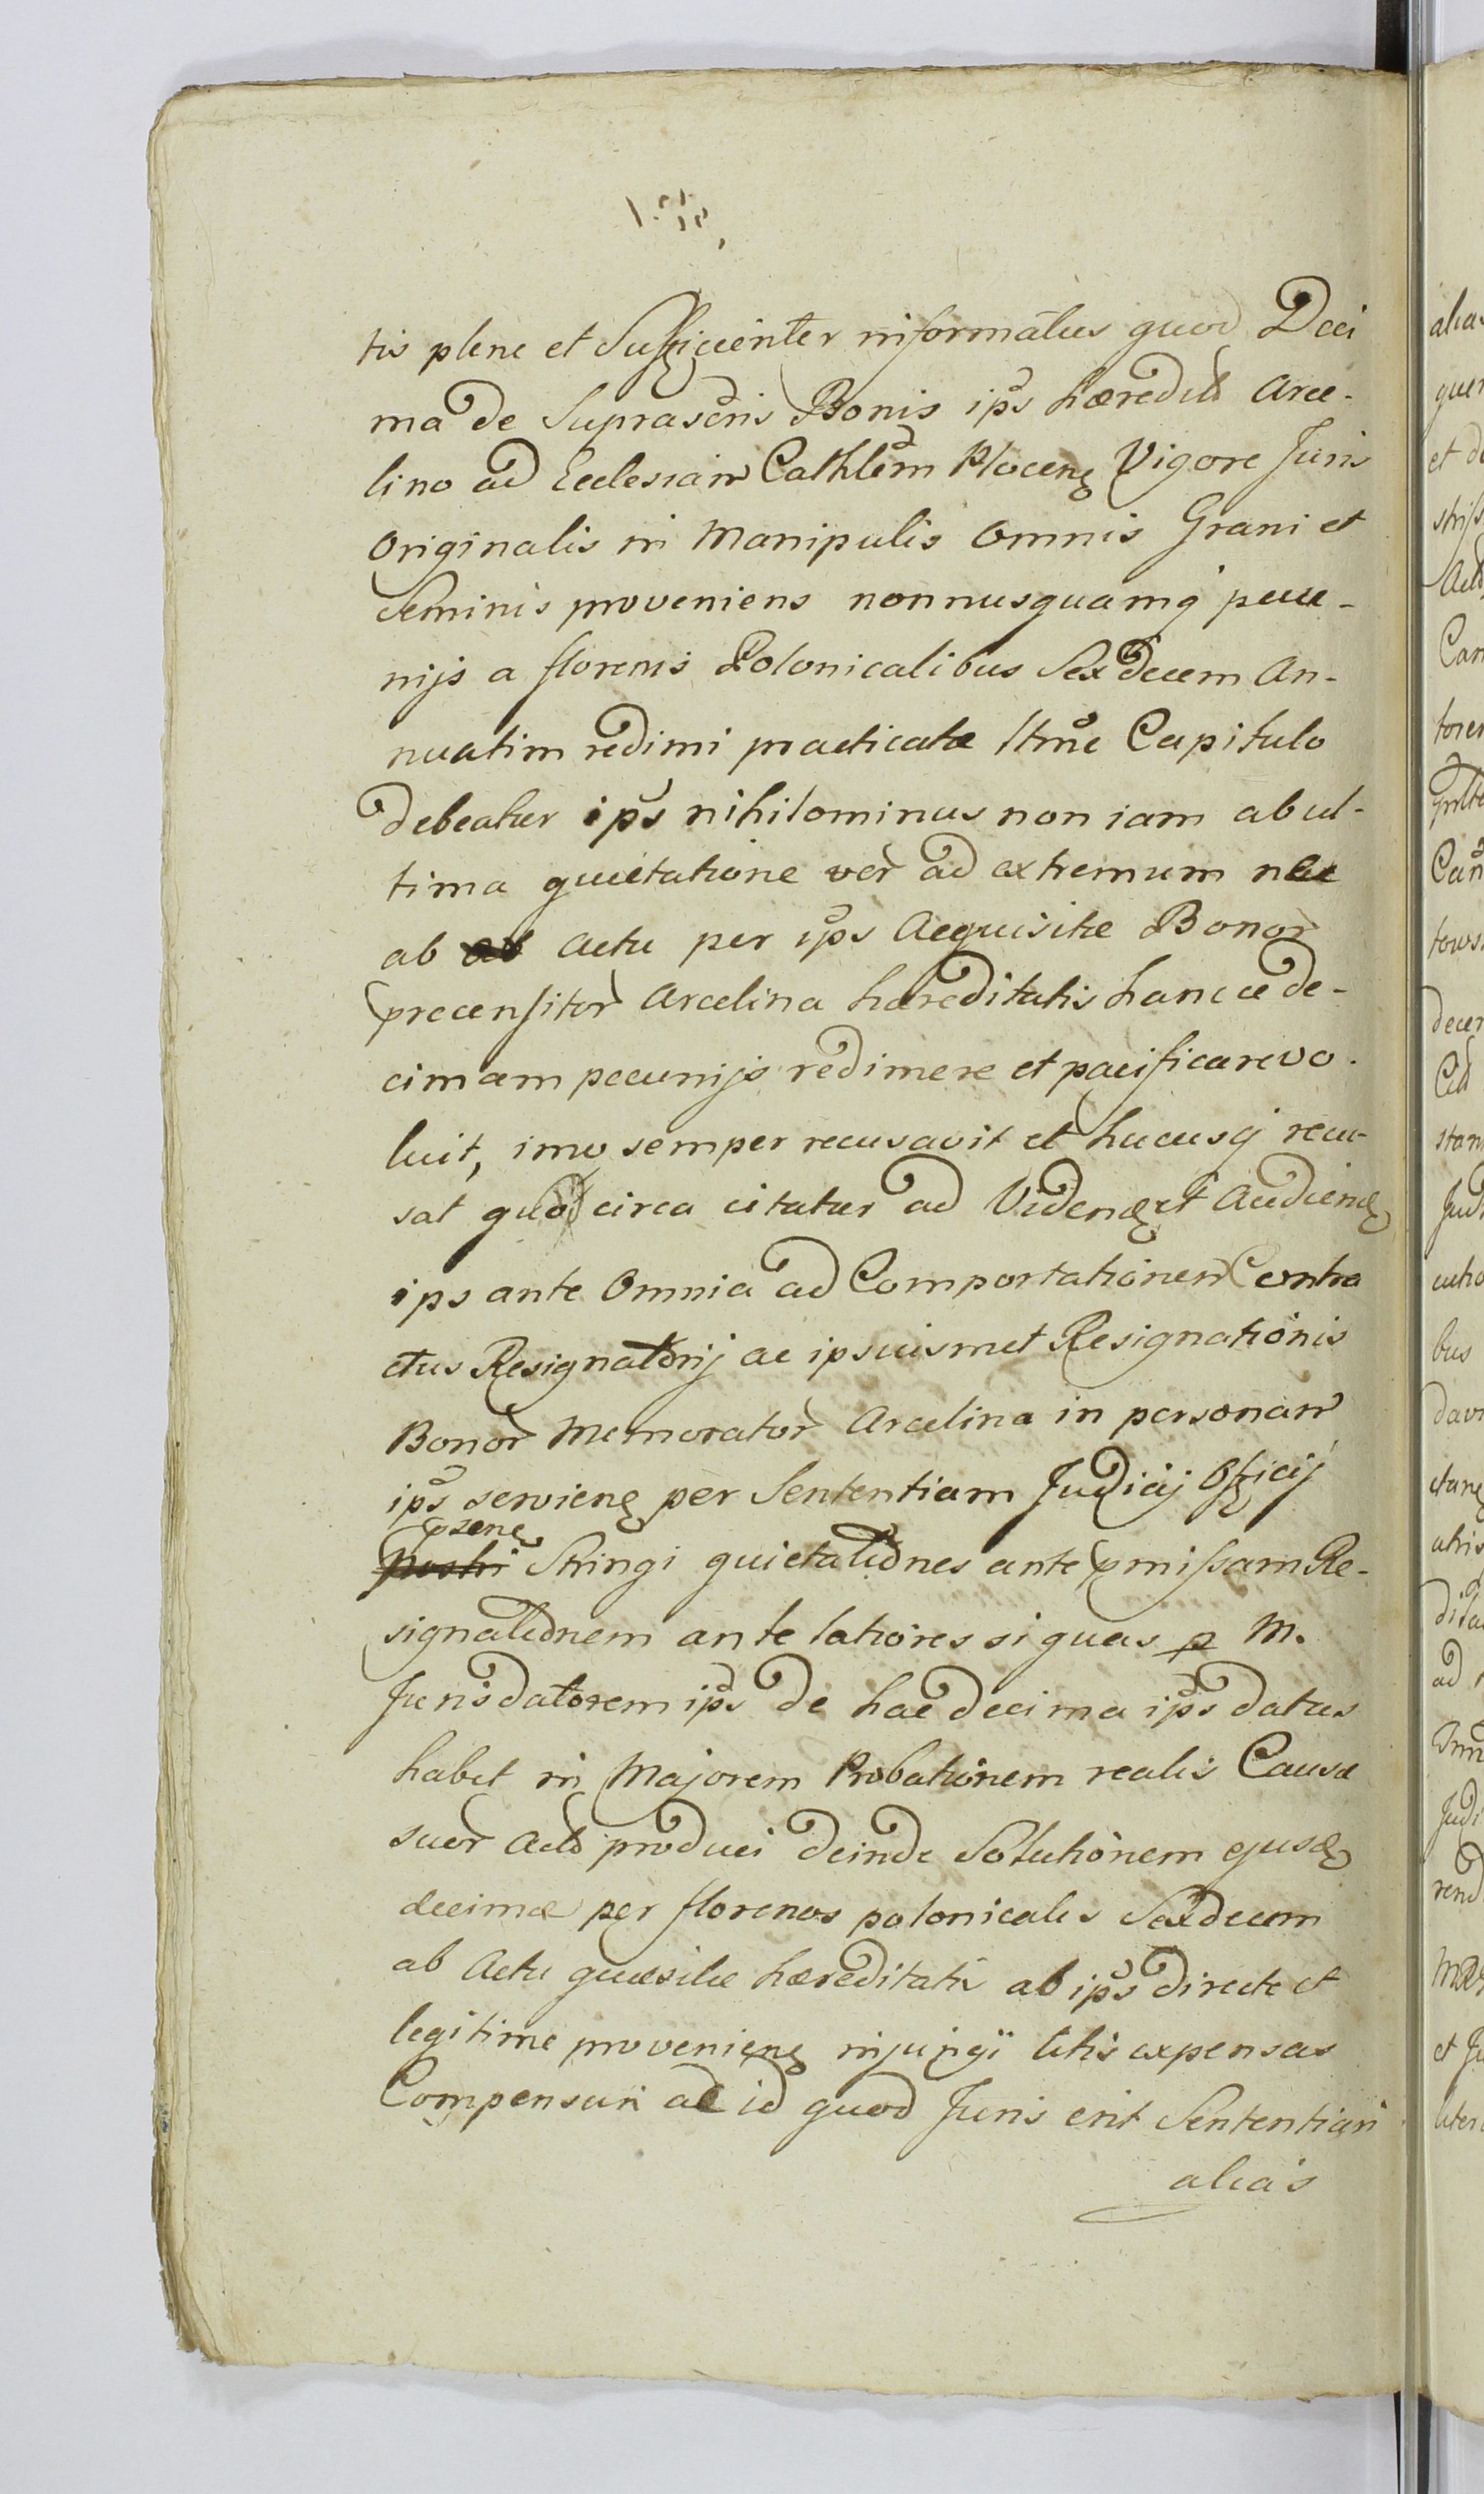 tis plene et Sufficienter informatus quod Deci
ma de Suprascris Bonis ips hæredit Arce-
lino ad Ecclesiam Cathlem Plocen Vigore Juris
Originalis in Manipulis Omnis Grani et
Seminis proveniens nonnusquamq pecu-
nijs a florenis Polonicalibus Sexdecem An-
nuatim redimi practicata Ittme Capitulo
debeatur ips nihilominus non iam ab ul-
tima quietatione ver ad extremum nec
ab ab actu per ips Acquisitæ Bonor
precensitor Arcelina hæreditatis hancce de-
cimam pecunijs redimere et pacificare vo-
luit, imo semper recusavit et hucusq recu-
sat quo circa citatur ad Viden et Audien
ips ante Omnia ad Comportationem Contra
ctus Resignatorij ac ipsuismet Resignationis
Bonor Memorator Arcelina in personam
ips servien per Sententiam Judicij Officij
pzen
Stringi quietationes ante pmissam Re-
signationem ante latiores si quas p M.
Jurisdatorem ips de hac decima ips datas
habet in Majorem Probationem realis Causæ
suor Act produci deinde Solutionem ejusd
decimæ per florenos polonicales Sexdecem
ab Actu quæsitæ hæreditatis ab ips directe et
legitime provenien injungi litis expensas
Compensari ac id quod Juris erit Sententiari
alias